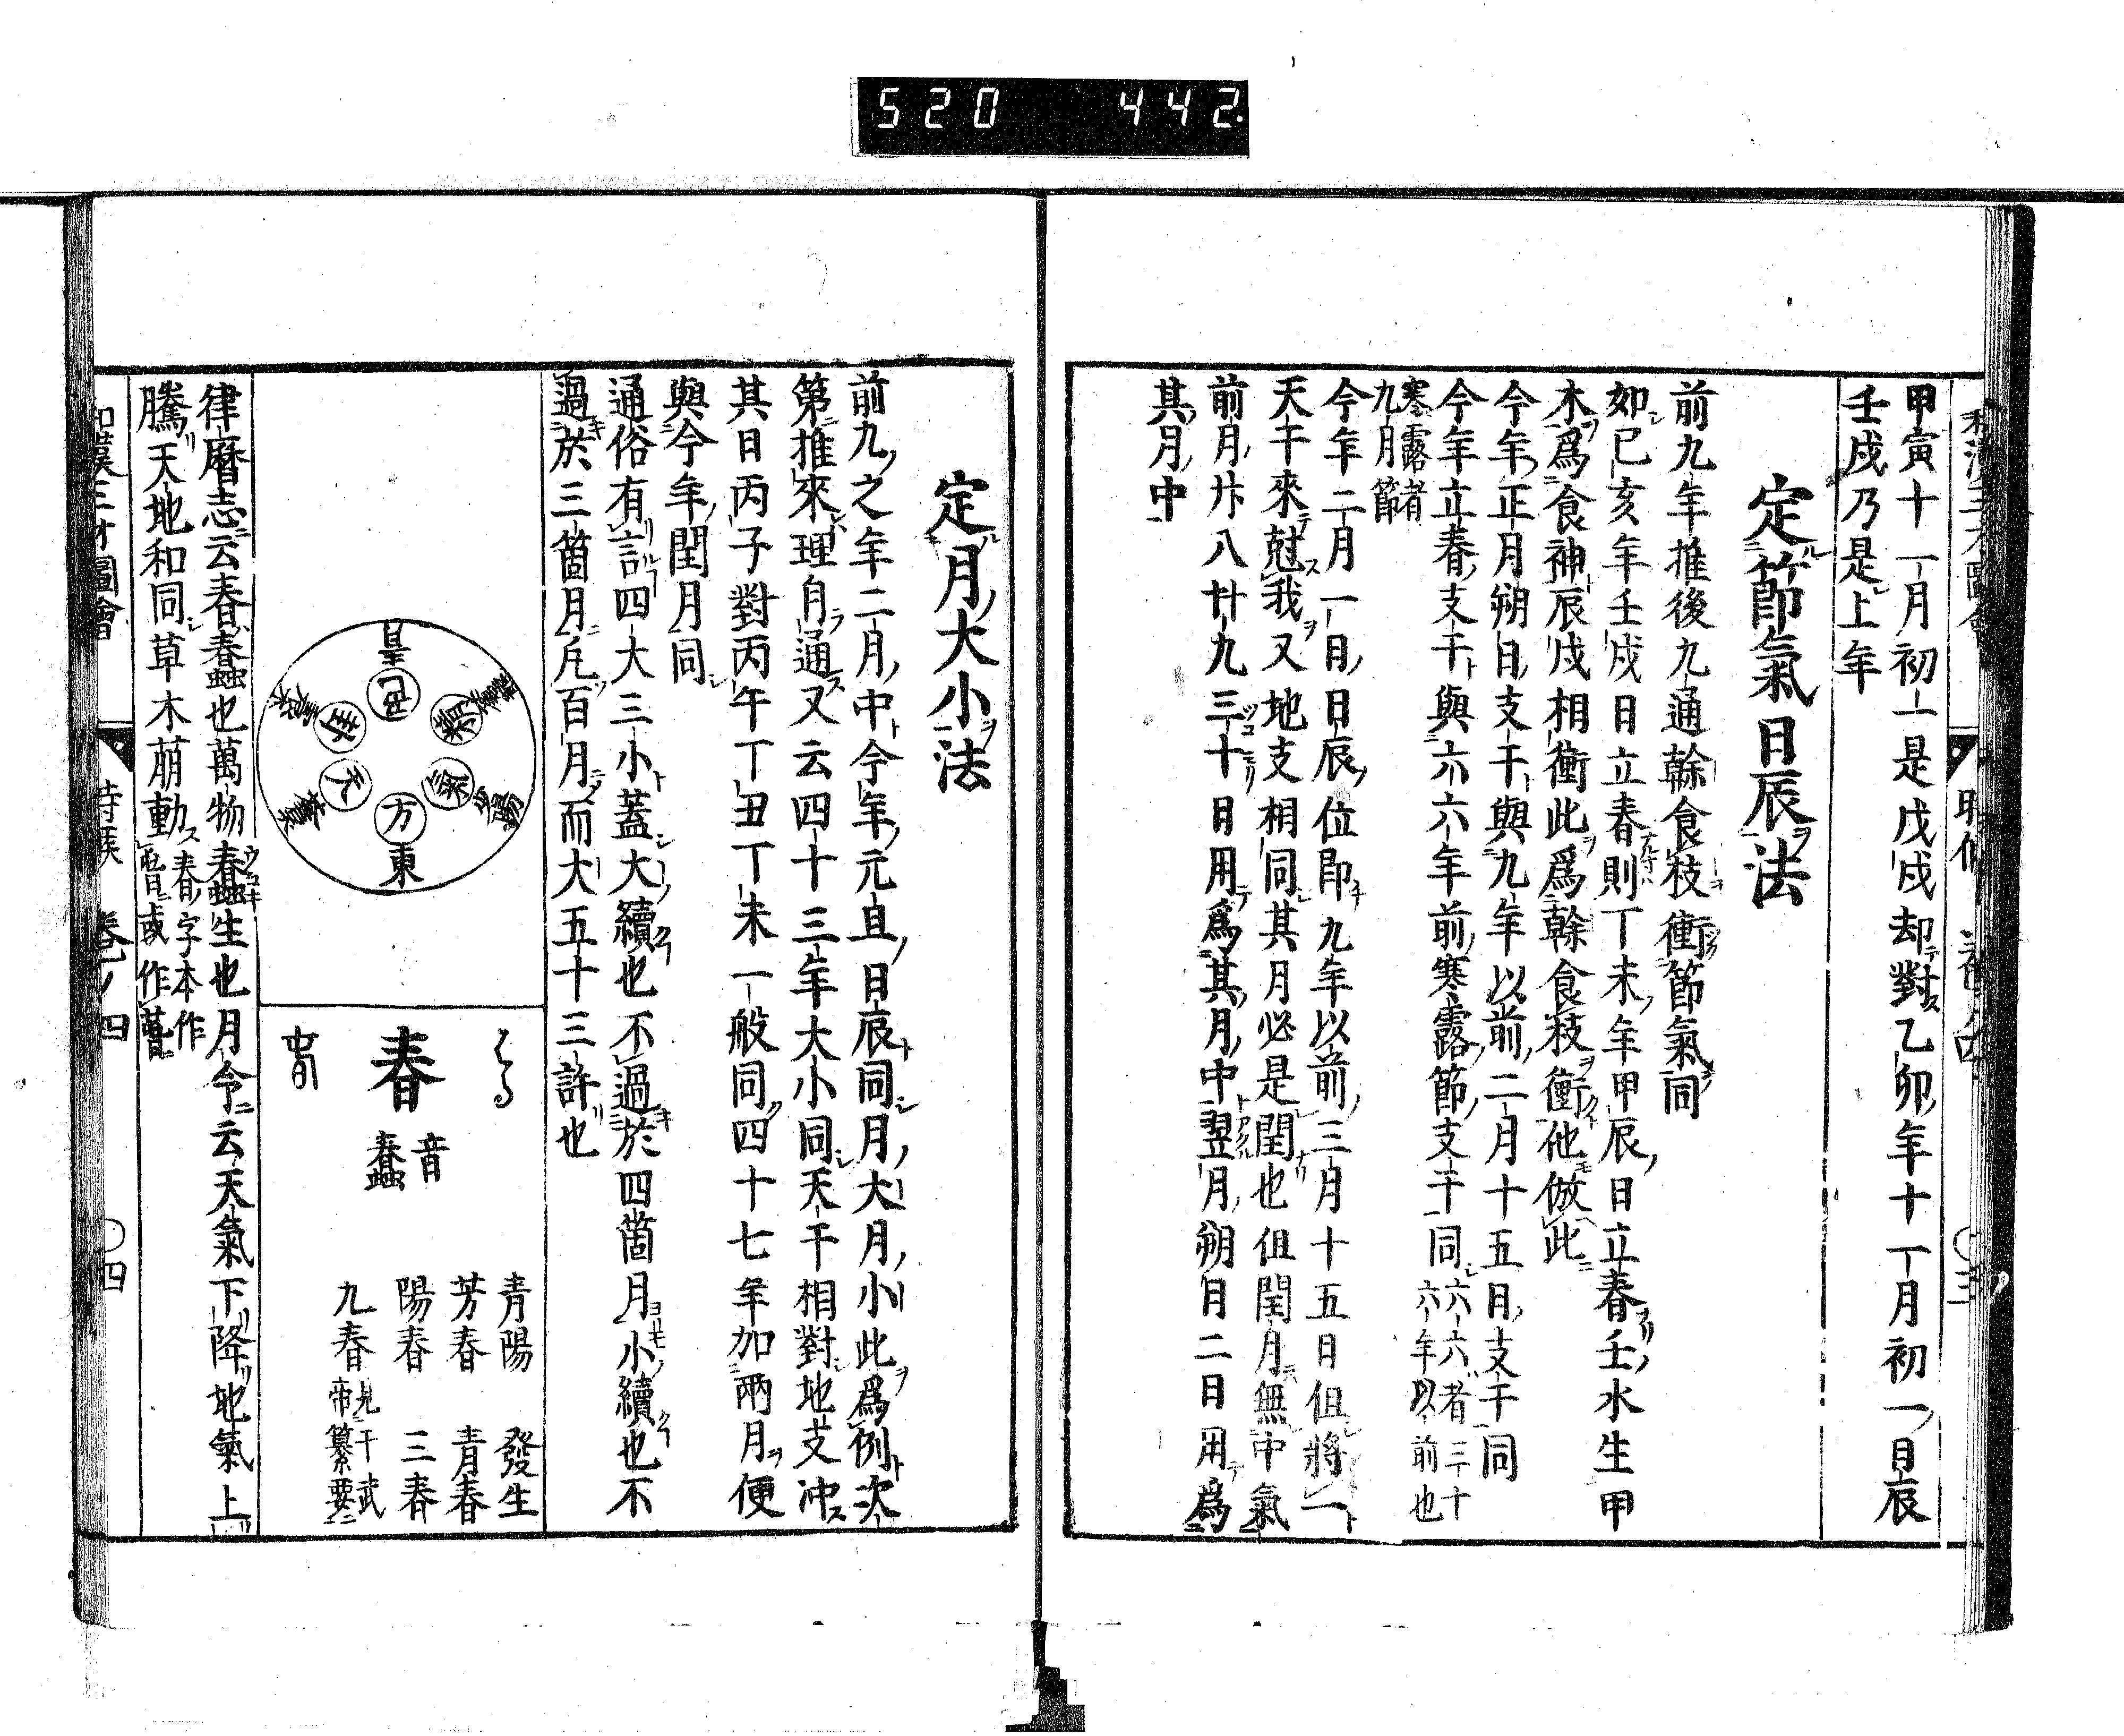 520 442.
甲寅十一月初一是戊戌却對乙卯年十一月初一日辰
壬戌乃是上年
定節氣日辰法
前九年推後九通幹食枝衝節氣同
如己亥年壬戌日立春則丁未年甲辰日立春壬水生甲
木爲食神辰戌相衝此爲幹食枝衝他倣此
今年正月朔日支干與九年以前二月十五日支干同
今年立春支干與六六年前寒露節支干同六六者三十六年以前也
寒露者九月節
今年二月一日日辰位即九年以前三月十五日但將一
天干來尅我又地支相同其月必是閏也但閏月無中氣
前月廿八廿九三十日用爲其月中翌月朔日二日用爲
其月中
定月大小法
前九之年二月中今年元且日辰同月大月小此爲例次
第推來理自通又云四十三年大小同天干相對地支沖
其日丙子對丙午丁丑丁未一般同四十七年加兩月便
與今年閏月同
通俗有言四大三小蓋大續也不過於四箇月小續也不
過於三箇月凡百月而大五十三許也
皇
東
方
天
はる
春
音蠢
青陽 發生
芳春 青春
陽春 三春
九春 見于武帝纂要
律曆志云春蠢也萬物蠢生也月令云天氣下降地氣上
騰天地和同草木萠動春字本作
和漢三才圖會 時候 卷ノ四 〇四